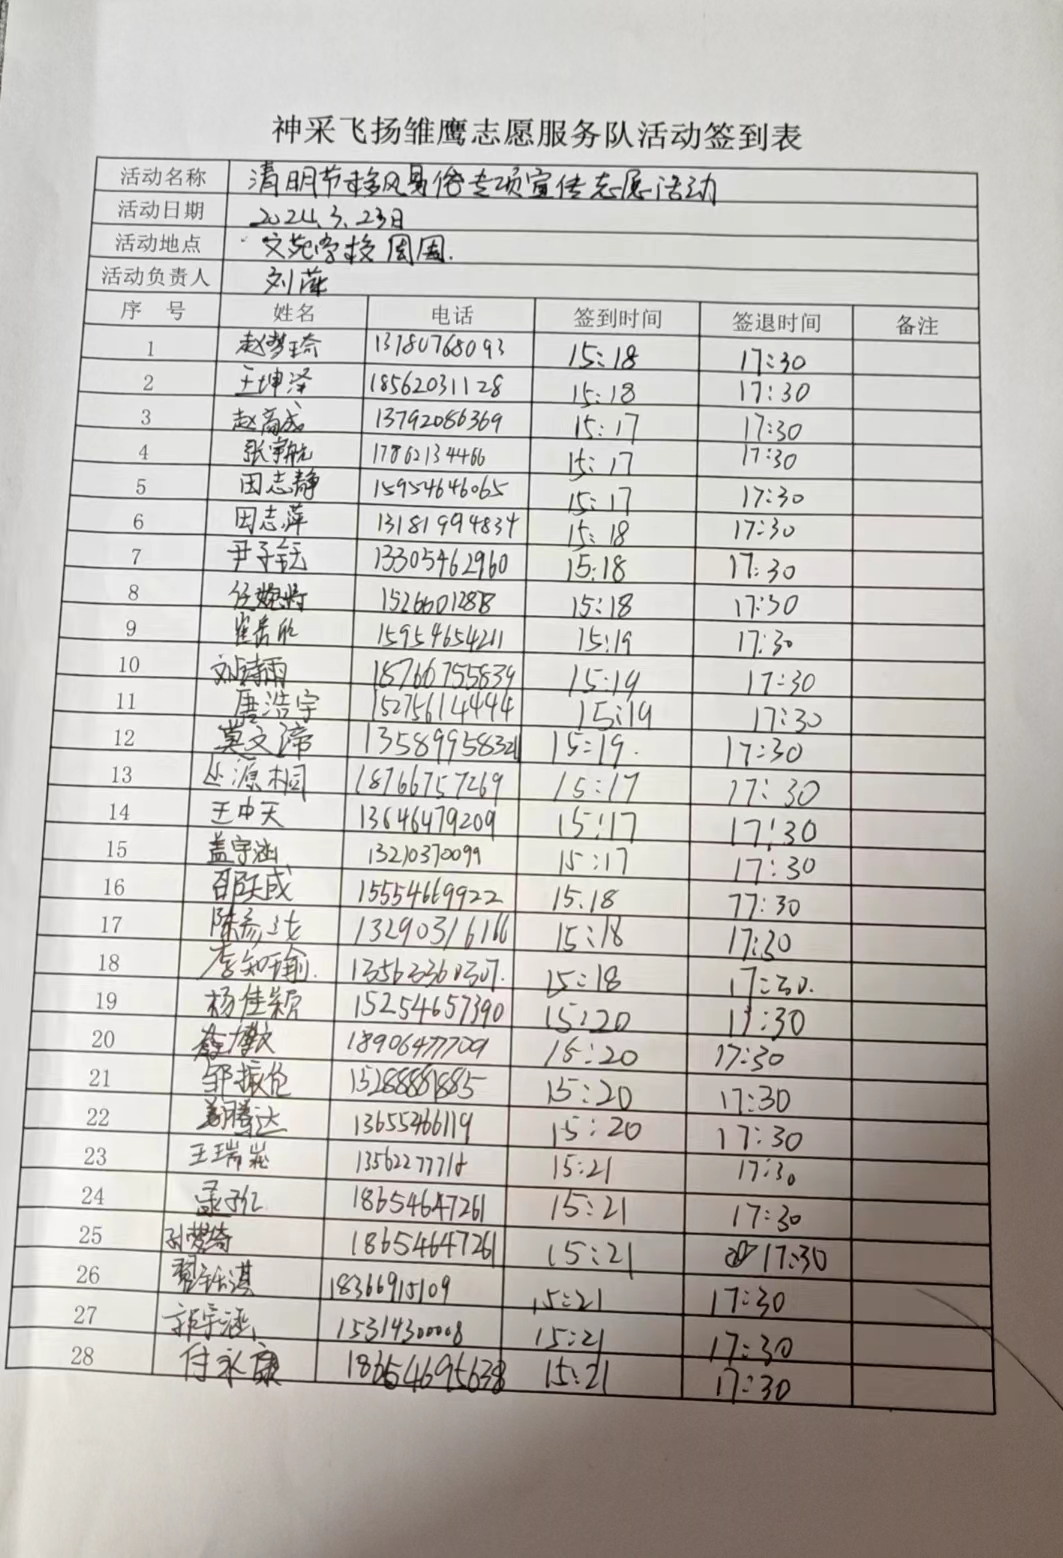 神采飞扬雏鹰志愿服务队活动签到表
活动名称 清明节移风易俗专项宣传志愿活动
活动日期 2024.3.23日
活动地点 文苑学校周围.
活动负责人 刘萍
序 号 姓名 电话 签到时间 签退时间 备注
1 赵梦琦 13780768093 15:18 17:30
2 王坤泽 18562031128 15:18 17:30
3 赵高成 13792086369 15:17 17:30
4 张宇航 17862134466 15:17 17:30
5 田志静 15954646065 15:17 17:30
6 田志萍 13181994834 15:18 17:30
7 尹子钰 13305462960 15:18 17:30
8 15:18 17:30
9 15954654211 15:19 17:30
10 刘诗雨 18766755839 15:19 17:30
11 唐浩宇 15275614494 15:19 17:30
12 莫文滞 13589958321 15:19. 17:30
13 丛源桐 18766757269 15:17 17:30
14 王中天 13646479209 15:17 17:30
15 盖宇涵 13210370099 15:17 17:30
16 邵跃成 15554669922 15.18 77:30
17 陈彦 13290316166 15:18 17:30
18 李知瑜. 13562360307. 15:18 17:30.
19 杨佳颖 15254657390 15:20 17:30
20 18906477709 15:20 17:30
21 邹振 15288881885 15:20 17:30
22 腾达 13655466119 15:20 17:30
23 王瑞 13562277718 15:21 17:30
24 孟 18654647261 15:21 17:30
25 孙梦绮 18654647261 15:21 17:30
26 翟 淇 18366915109 15:21 17:30
27 郭宇涵 15314300008 15:21 17:30
28 付永康 18654695638 15:21 17:30